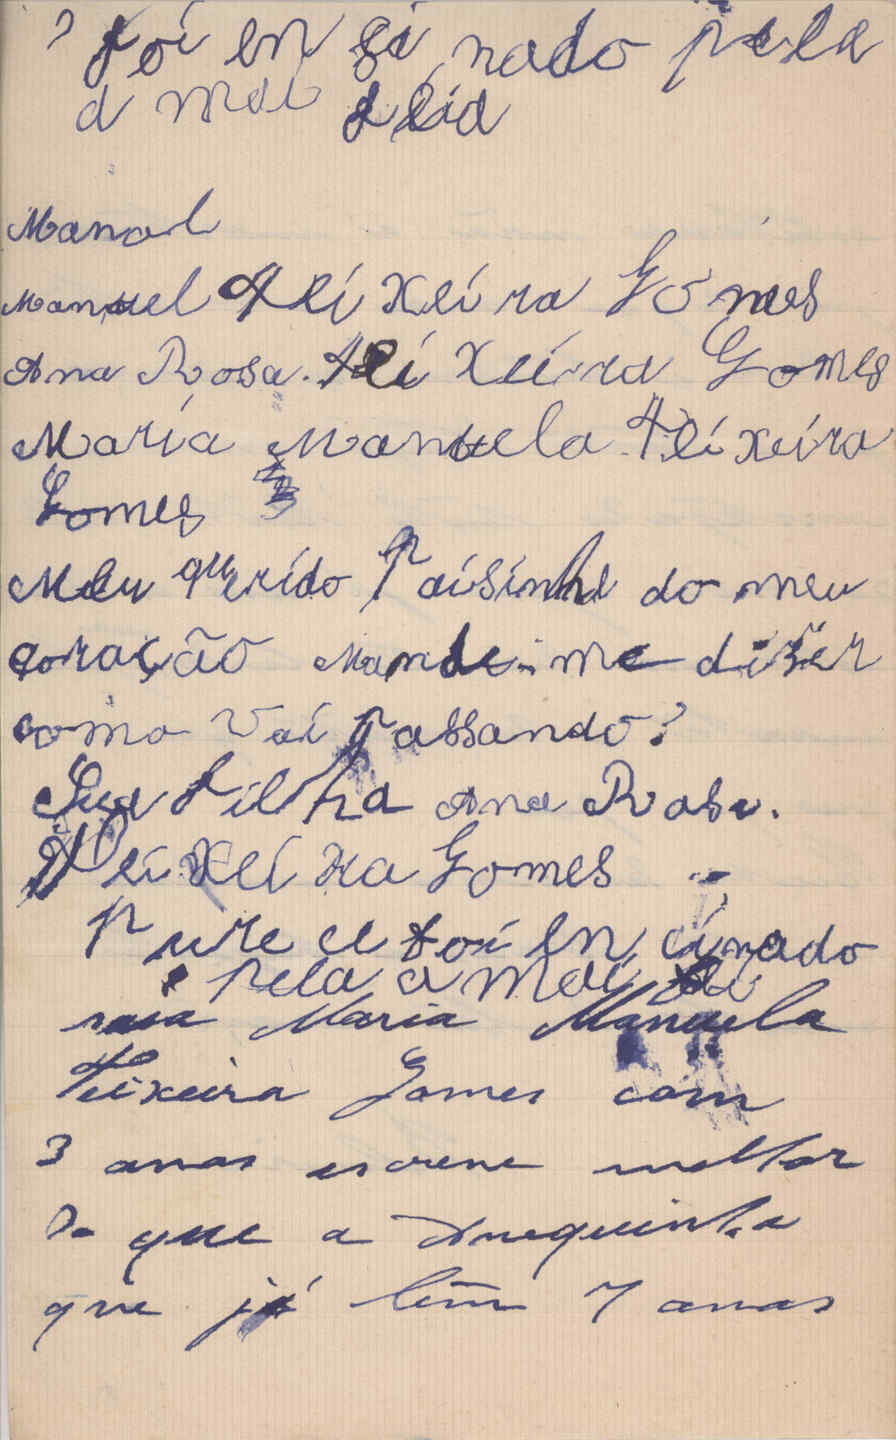 ? foi en si nado pela
a mai
Manol
Manuel Teixeira Gomes
Ana Rosa. Teixeira Gomes
Maria Manuela Teixeira
Gomes
Meu querido Paisinho do meu
coração Mande-me diser
como vai passando?
Sua filha Ana Rosa.
Teixeira Gomes
foi en cinado
pela a mai
Maria Manuela
Teixeira Gomes com
3 anos escreve melhor
do que a Anequinha
que já tem 7 anos